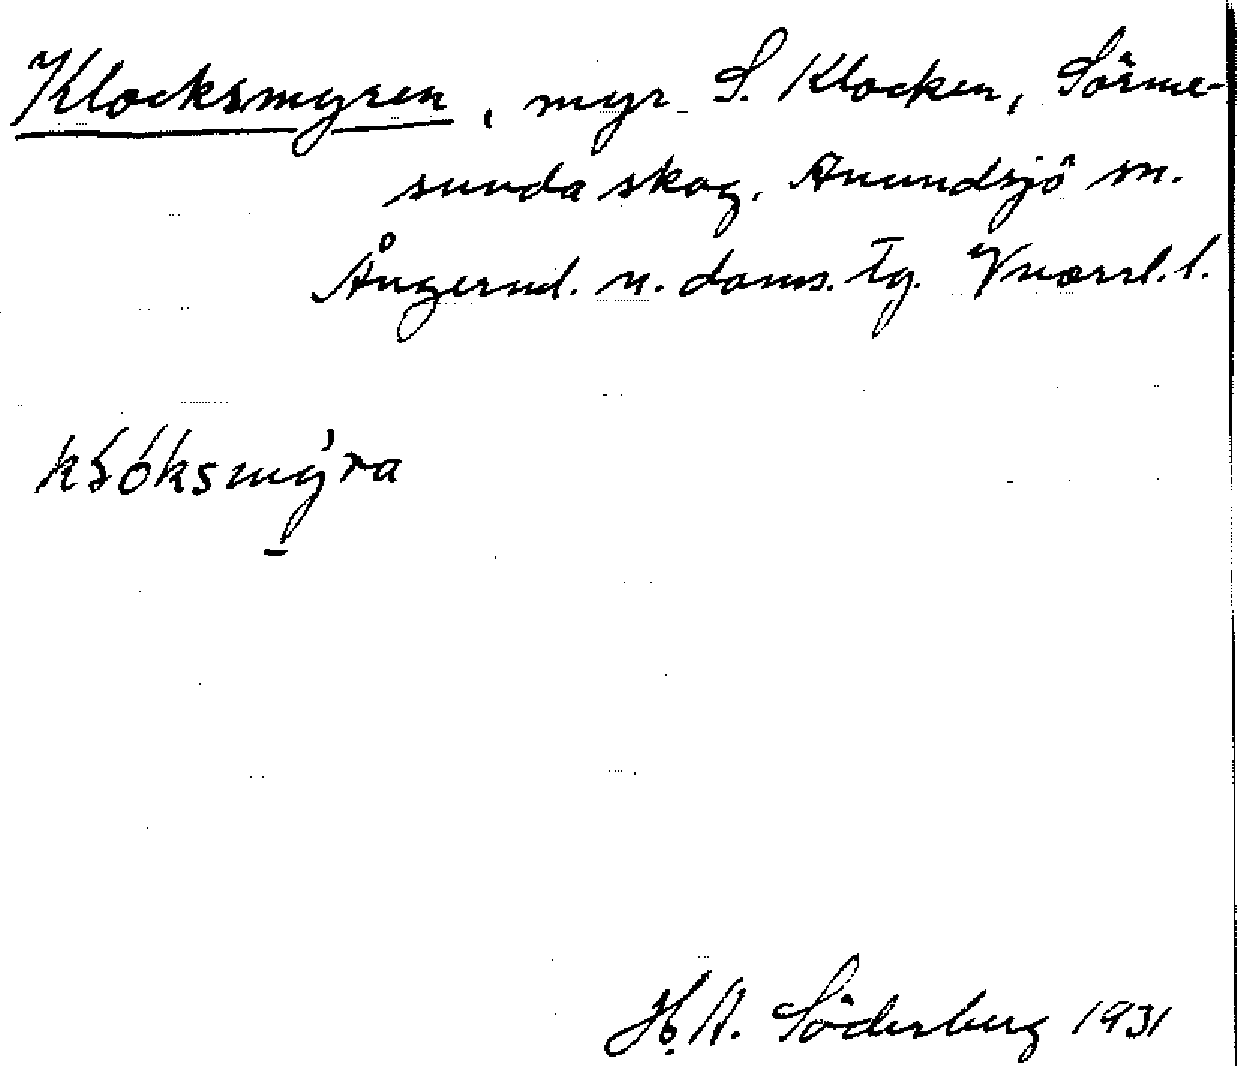 Klocksmyren, myr S. Klocken, Sörme-
sunda skog. Anundsjö sn.
Ångerml. n. doms. Tg. Vnorrl. l.
klóksmỳ̱ra
H. A. Söderberg 1931